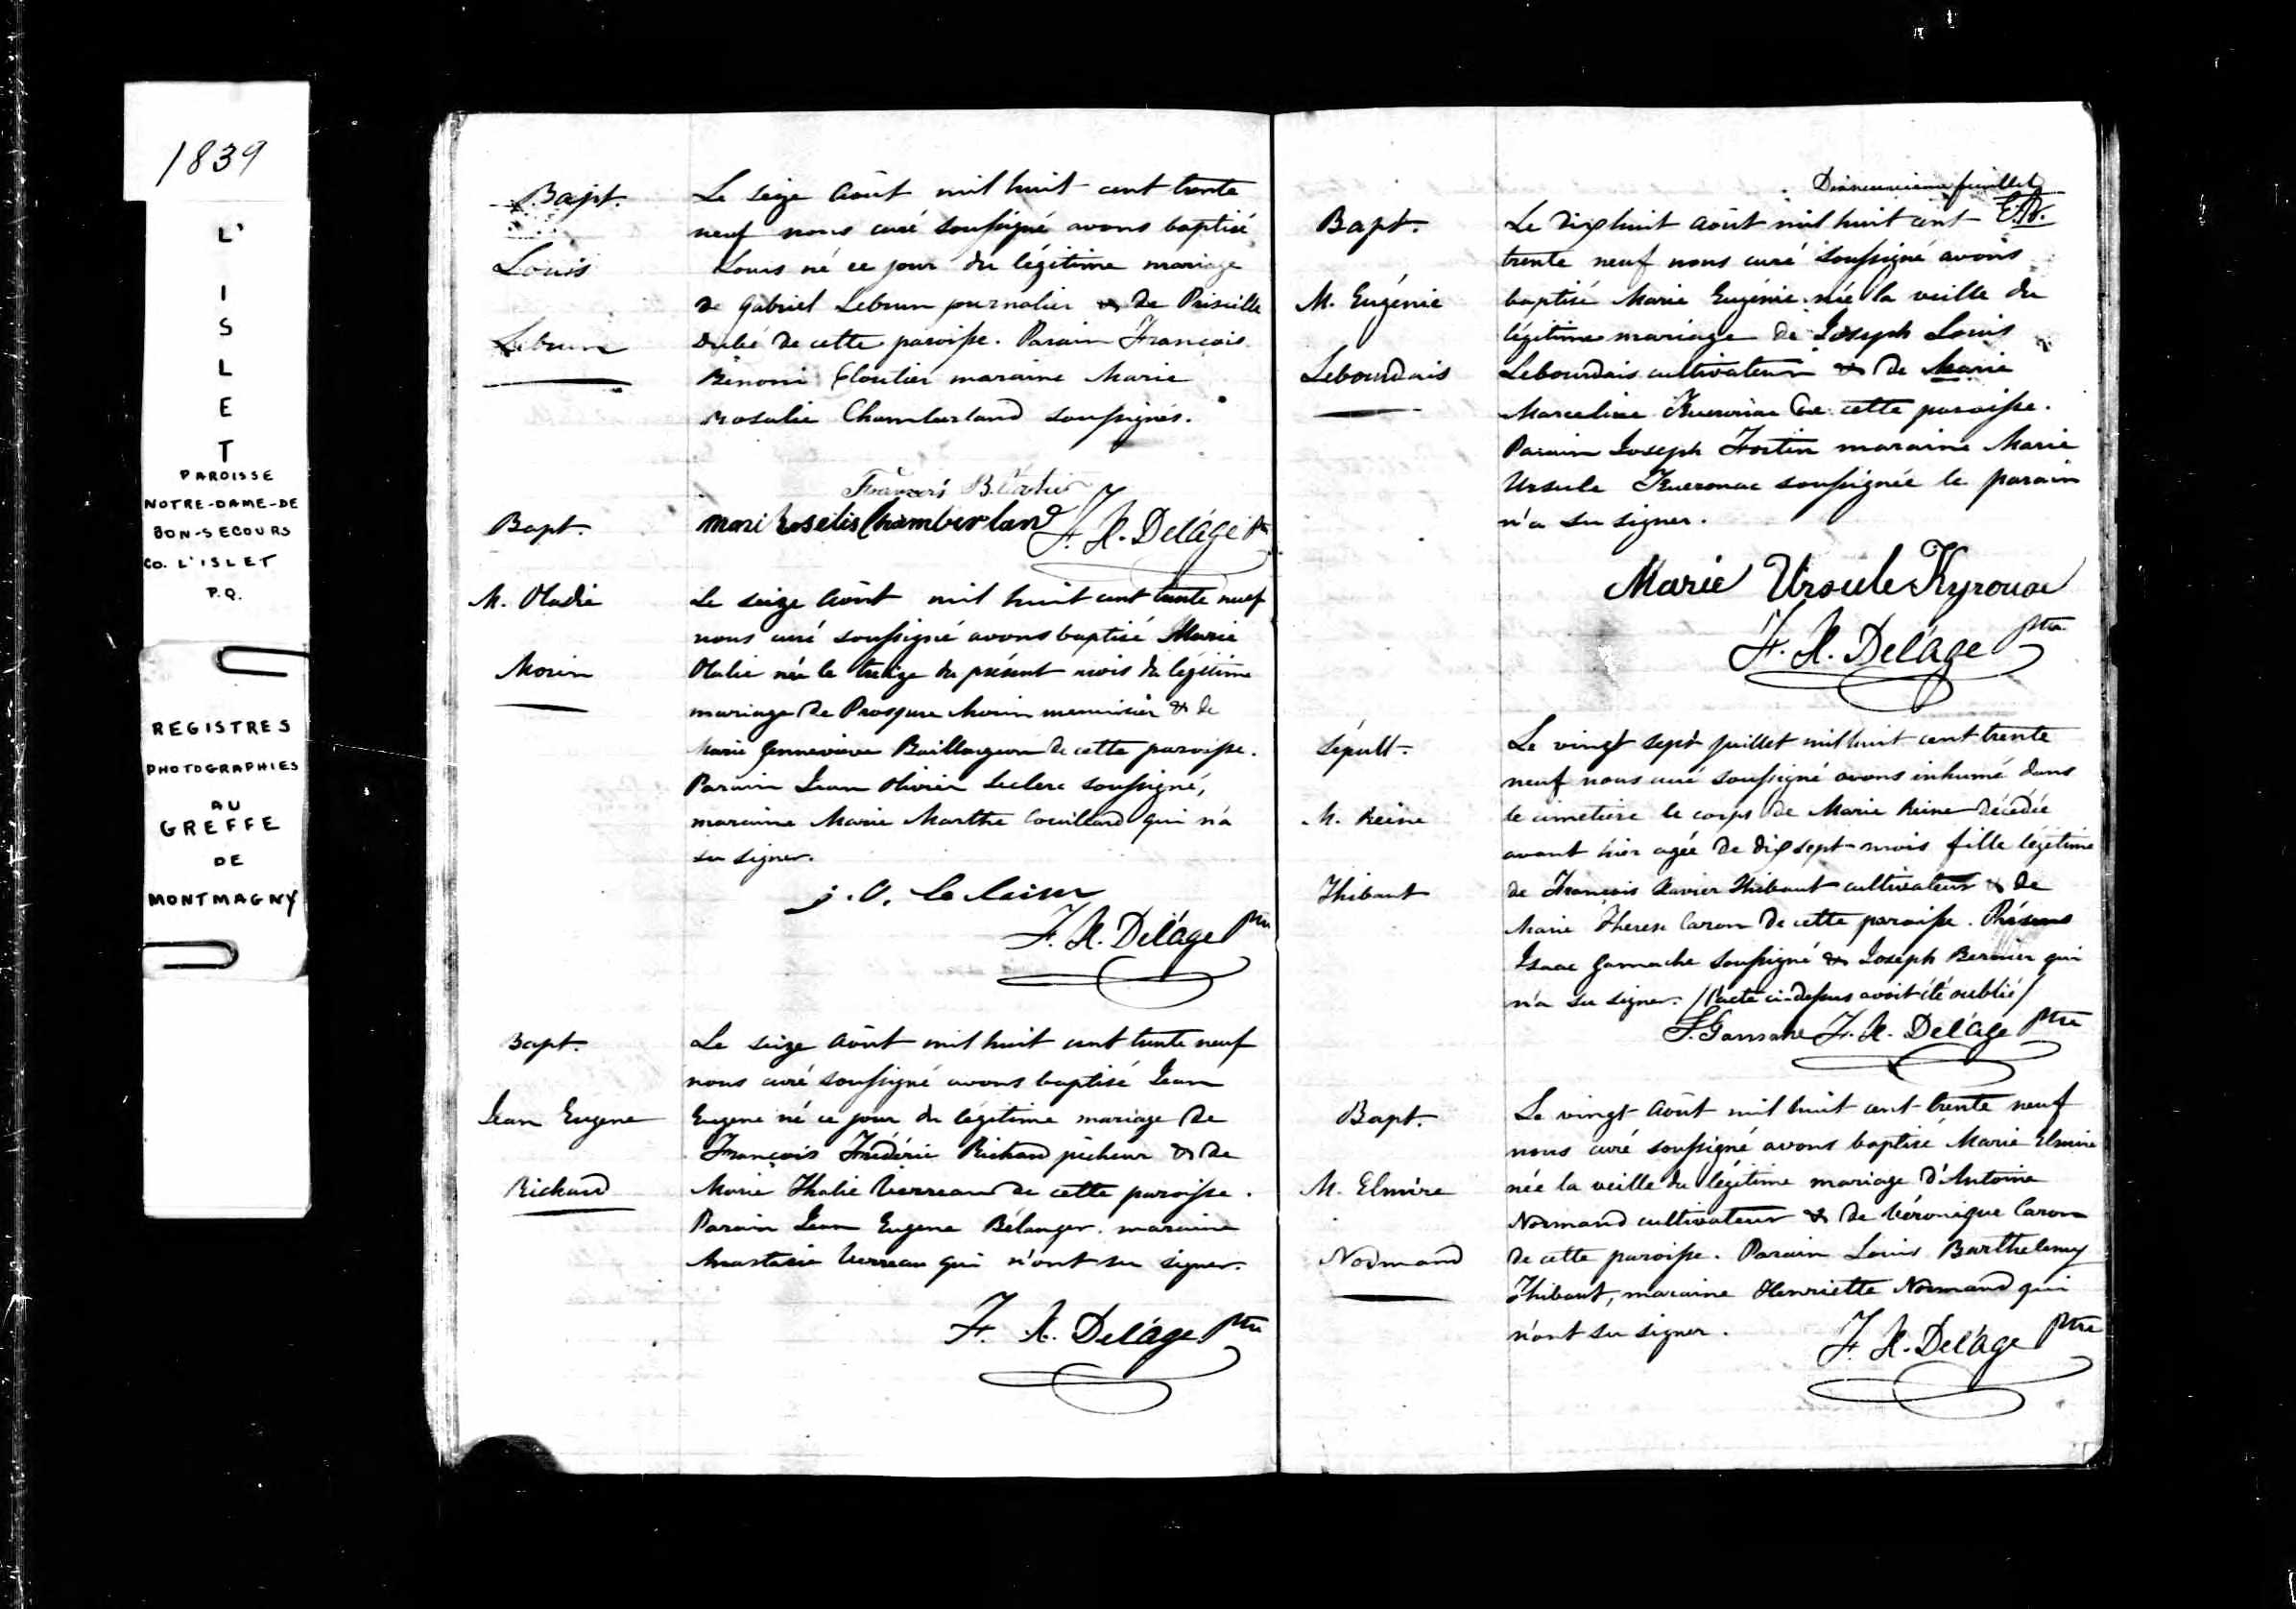 1839
L'
I
S
L
E
T
PAROISSE
NOTRE-DAME-DE
BON-SECOURS
CO. L'ISLET
P.Q.
REGISTRES
PHOTOGRAPHIES
AU
GREFFE
DE
MONTMAGNY
Bapt.
Louis
Lebrun
Le seize Août mil huit cent trente
neuf nous curé soussigné avons baptisé
Louis né ce jour du légitime mariage
de Gabriel Lebrun journalier & de Priscille
Dubé de cette paroisse. Parain François
Bénoni Cloutier maraine Marie
Rosalie Chamberland soussignés.
François B. Cloutier
mari Roselis Chamberland F. X. Delâge Ptre
Bapt.
M. Oladie
Morin
Le seize Août mil huit cent trente neuf
nous curé soussigné avons baptisé Marie
née le treize du présent mois du légitime
mariage de Morin menuisier & de
Marie Genevieve Baillargeon de cette paroisse.
Parain Jean Olivier Leclerc soussigné,
maraine Marie Marthe Couillard qui n'a
su signer.
j. O.
F. X. Delâge Ptre
Bapt.
Jean Eugene
Richard
Le seize Août mil huit cent trente neuf
nous curé soussigné avons baptisé Jean
Eugene né ce jour du légitime mariage de
François Fréderic Richard pêcheur & de
Marie Thalie Verreau de cette paroisse.
Parain Jean Eugene Bélanger. maraine
Anastasie Verreau qui n'ont su signer.
F. X. Delâge Ptre
Dixneuvieme feuillet
Bapt.
M. Eugénie
Lebourdais
Le dixhuit Août mil huit cent
trente neuf nous curé soussigné avons
baptisé Marie Eugénie née la veille du
légitime mariage de Joseph Louis
Lebourdais cultivateur & de Marie
Marceline Kuerouac de cette paroisse.
Parain Joseph Fortin maraine Marie
Ursule Kuerouac soussignée le parain
n'a su signer.
Marie Ursule Kyrouac
F. X. Delâge Ptre
Sépult.
M. Reine
Thibaut
Le vingt sept juillet mil huit cent trente
neuf nous curé soussigné avons inhumé dans
le cimetiere le corps de Marie Reine décédée
avant hier agée de dix sept mois fille légitime
de François Xavier Thibaut cultivateur & de
Marie Therese Caron de cette paroisse. Présens
Isaac Gamache soussigné & Joseph Bernier qui
n'a su signer. /l'acte ci-dessus avoit été oublié/
F. X. Delâge Ptre
Bapt.
M. Elmire
Normand
Le vingt Août mil huit cent trente neuf
nous curé soussigné avons baptisé Marie Elmire
née la veille du légitime mariage d'Antoine
Normand cultivateur & de Véronique Caron
de cette paroisse. Parain Louis Barthelemy
Thibaut, maraine Henriette Normand qui
n'ont su signer.
F. X. Delâge Ptre